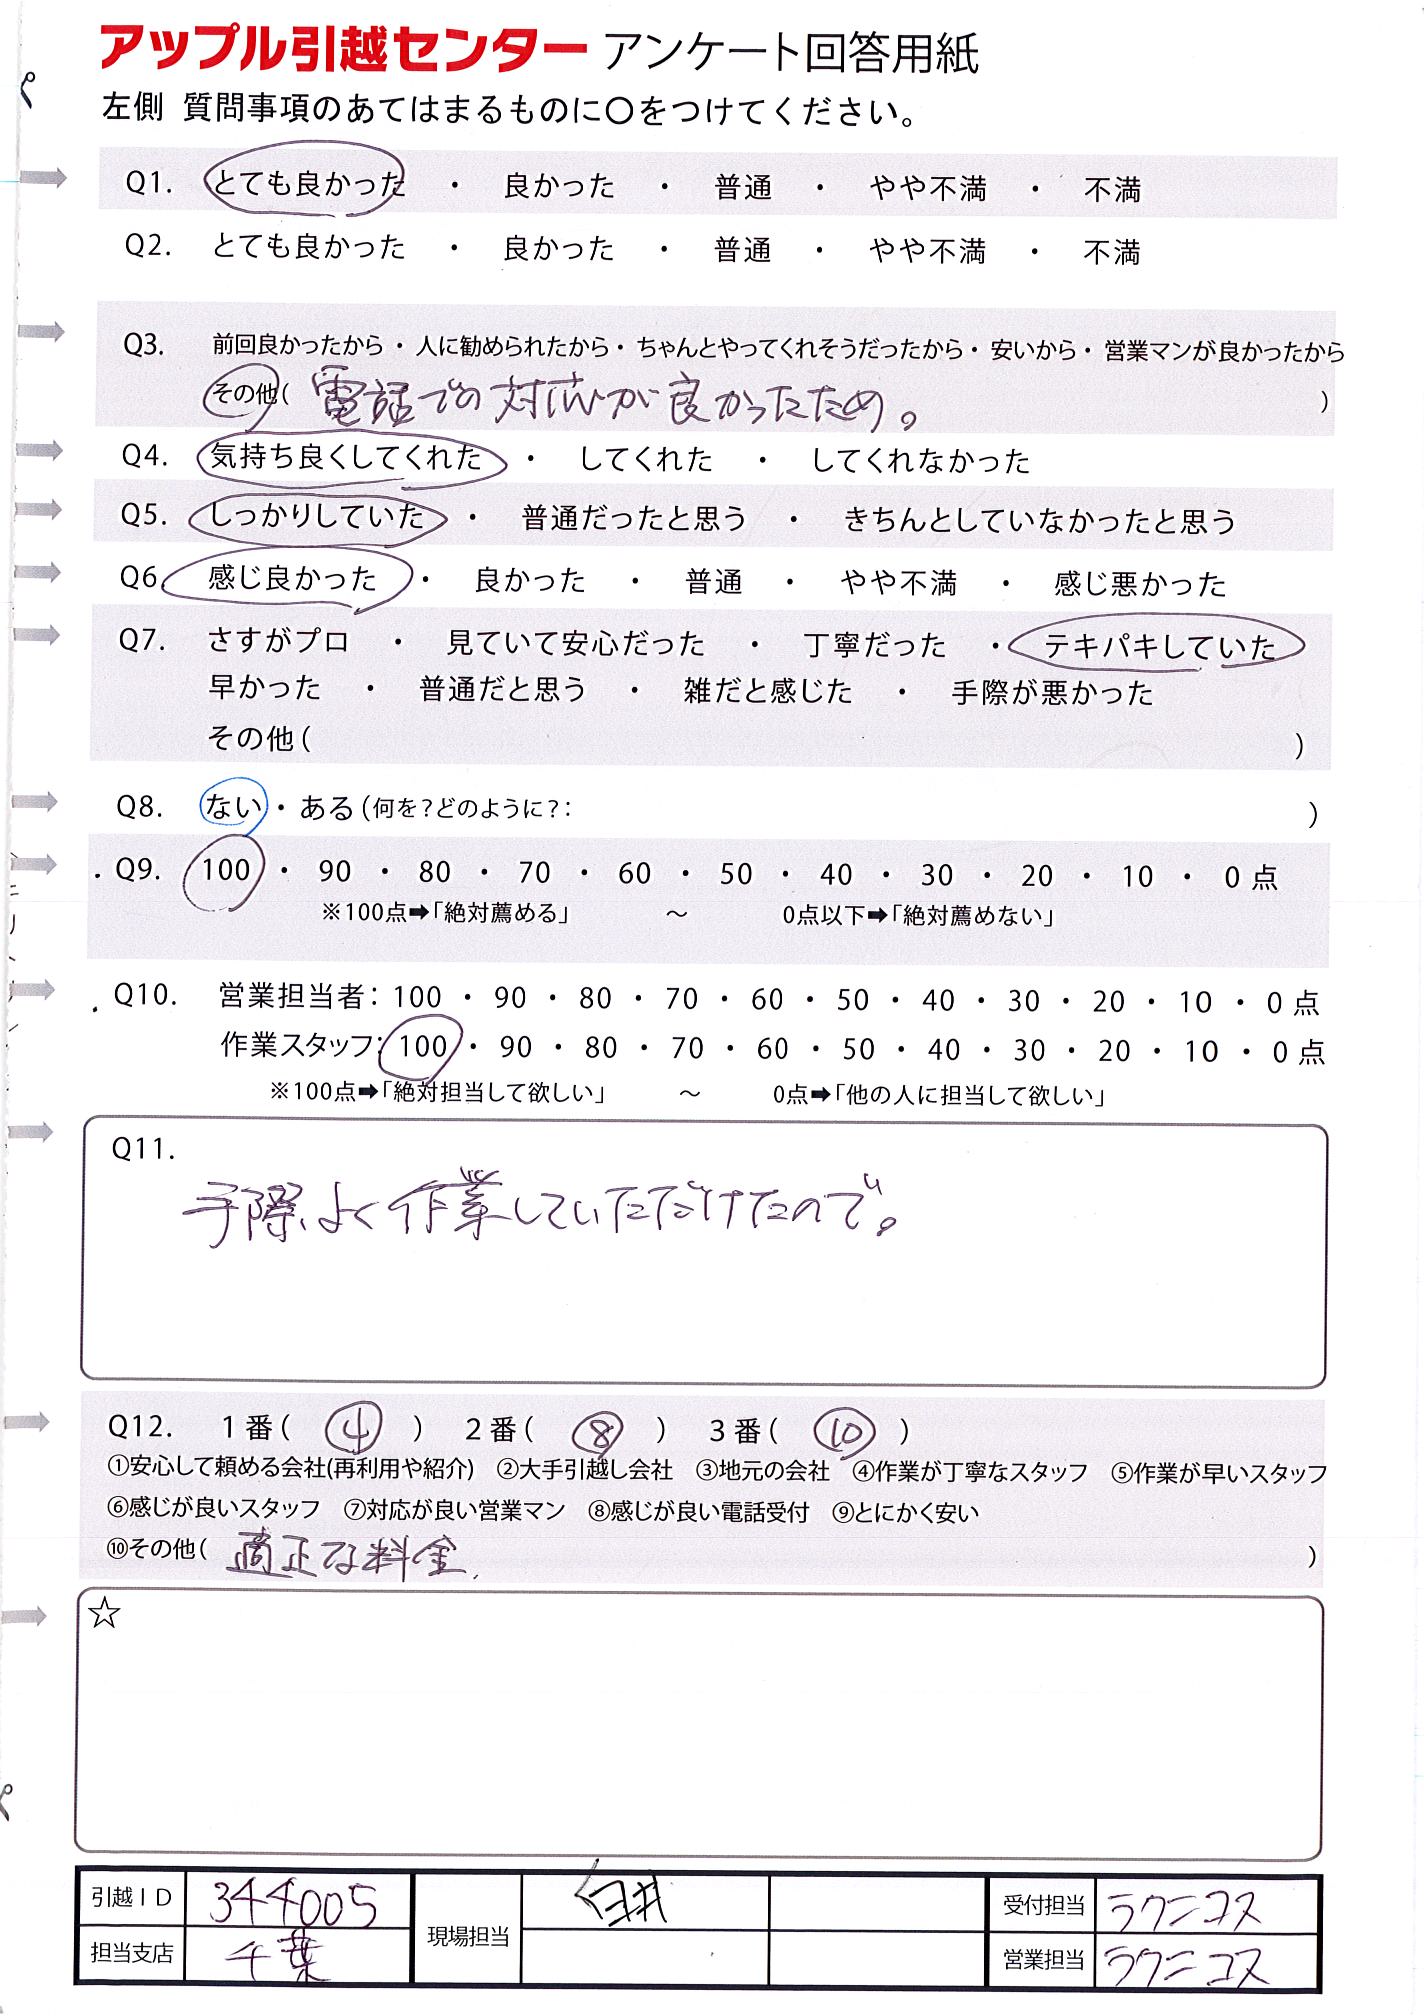 アップル引越センター アンケート回答用紙
左側 質問事項のあてはまるものに〇をつけてください。
Q1. とても良かった ・ 良かった ・ 普通 ・ やや不満 ・ 不満
Q2. とても良かった ・ 良かった ・ 普通 ・ やや不満 ・ 不満
Q3. 前回良かったから ・ 人に勧められたから ・ ちゃんとやってくれそうだったから ・ 安いから ・ 営業マンが良かったから
その他( 電話での対応が良かったため。 )
Q4. 気持ち良くしてくれた ・ してくれた ・ してくれなかった
Q5. しっかりしていた ・ 普通だったと思う ・ きちんとしていなかったと思う
Q6. 感じ良かった ・ 良かった ・ 普通 ・ やや不満 ・ 感じ悪かった
Q7. さすがプロ ・ 見ていて安心だった ・ 丁寧だった ・ テキパキしていた
早かった ・ 普通だと思う ・ 雑だと感じた ・ 手際が悪かった
その他( )
Q8. ない ・ ある (何を?どのように?: )
Q9. 100 ・ 90 ・ 80 ・ 70 ・ 60 ・ 50 ・ 40 ・ 30 ・ 20 ・ 10 ・ 0 点
※100点➡「絶対薦める」 ～ 0点以下➡「絶対薦めない」
Q10. 営業担当者: 100 ・ 90 ・ 80 ・ 70 ・ 60 ・ 50 ・ 40 ・ 30 ・ 20 ・ 10 ・ 0 点
作業スタッフ: 100 ・ 90 ・ 80 ・ 70 ・ 60 ・ 50 ・ 40 ・ 30 ・ 20 ・ 10 ・ 0 点
※100点➡「絶対担当して欲しい」 ～ 0点➡「他の人に担当して欲しい」
Q11.
手際よく作業していただけたので。
Q12. 1番( ④ ) 2番( ⑧ ) 3番( ⑩ )
①安心して頼める会社(再利用や紹介) ②大手引越し会社 ③地元の会社 ④作業が丁寧なスタッフ ⑤作業が早いスタッフ
⑥感じが良いスタッフ ⑦対応が良い営業マン ⑧感じが良い電話受付 ⑨とにかく安い
⑩その他( 適正な料金. )
☆
引越ID 344005 現場担当 受付担当 ラクニコス
担当支店 千葉 営業担当 ラクニコス